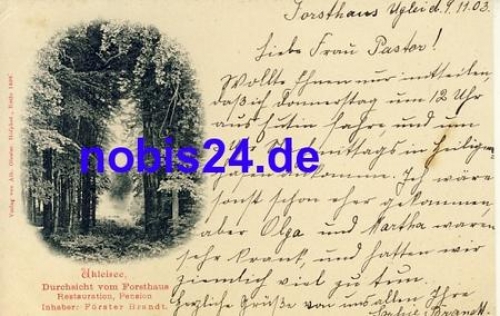 Forsthaus Uglei d. 9.11.03
Liebe Frau Pastor!
Wollte Ihnen nur mitteilen,
daß ich Donnerstag um 12 Uhr
aus Eutin fahre, und um
Uhr Nachmittags in Heiligen
hafen ankomme. Ich wäre
sonst schon eher gekommen,
aber Olga und Martha waren
sehr krank, und hatten wir
ziemlich viel zu tun.
Herzliche Grüße von uns allen Ihre
Brandt.
nobis24.de
Ukleisee,
Durchsicht vom Forsthaus
Restauration, Pension
Inhaber: Förster Brandt.
Verlag von